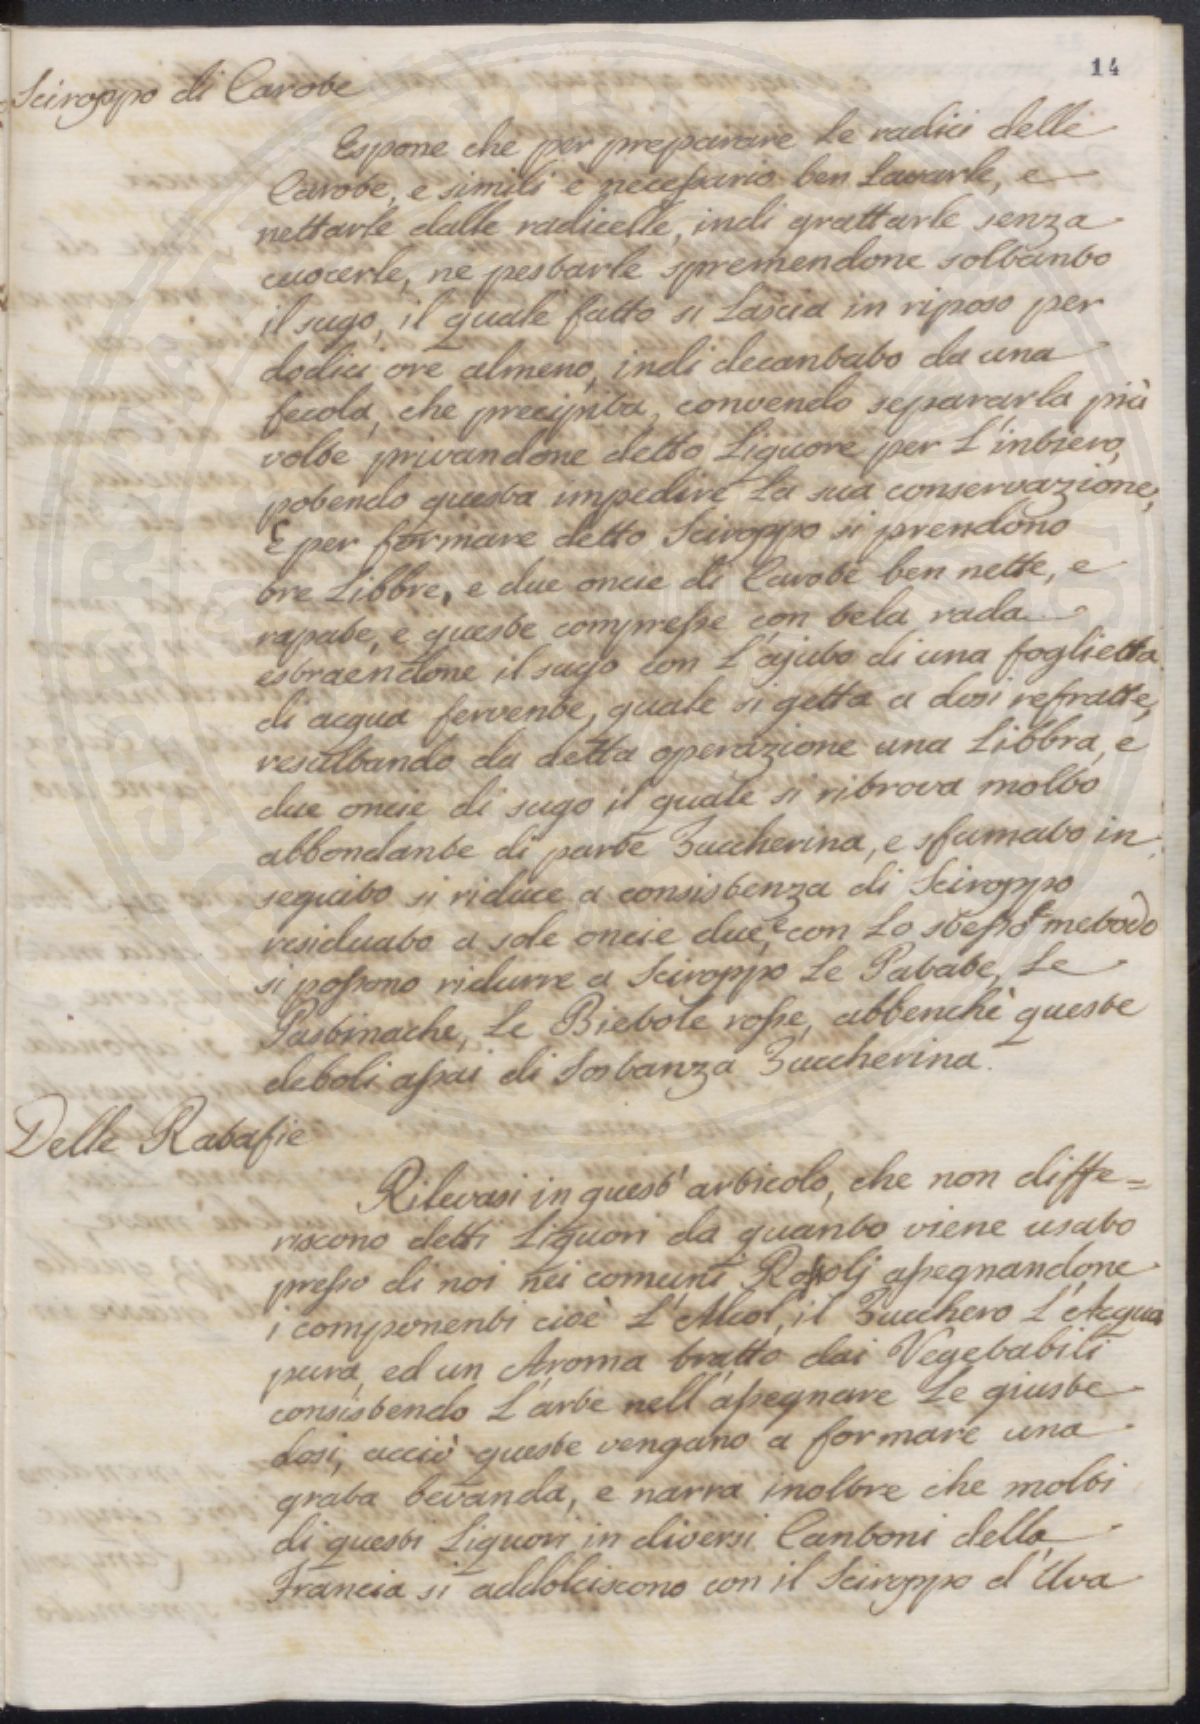 14
Sciroppo di Carote
Espone che per preparare le radici delle
Carote, e simili è necessario ben lavarle, e
nettarle dalle radicelle, indi grattarle senza
cuocerle, ne pestarle spremendone soltanto
il sugo, il quale fatto si lascia in riposo per
dodici ore almeno, indi decantato da una
fecola, che precipita, convendo separarla più
volte privandone detto Liquore per l'intiero,
potendo questa impedire la sua conservazione;
E per formare detto Sciroppo si prendono
tre Libbre, e due oncie di Carote ben nette, e
rapate, e queste compresse con tela rada
estraendone il sugo con l'ajuto di una foglietta
di acqua fervente, quale si getta a dosi refratte,
resultando da detta operazione una Libbra, e
due oncie di sugo il quale si ritrova molto
abbondante di parte Zuccherina, e sfumato in
seguito si riduce a consistenza di Sciroppo
residuato a sole oncie due, e con lo stesso metodo
si possono ridurre a Sciroppo le Patate, le
Pastinache, le Bietole rosse, abbenchè queste
deboli assai di Sostanza Zuccherina.
Delle Ratafie
Rilevasi in quest'articolo, che non diffe=
riscono detti Liquori da quanto viene usato
presso di noi nei comuni Rosolj assegnandone
i componenti cioè l'Alcol, il Zucchero l'Acqua
pura, ed un Aroma tratto dai Vegetabili
consistendo l'arte nell'assegnare le giuste
dosi, acciò queste vengano a formare una
grata bevanda, e narra inoltre che molti
di questi Liquori in diversi Cantoni della
Francia si addolciscono con il Sciroppo d'Uva